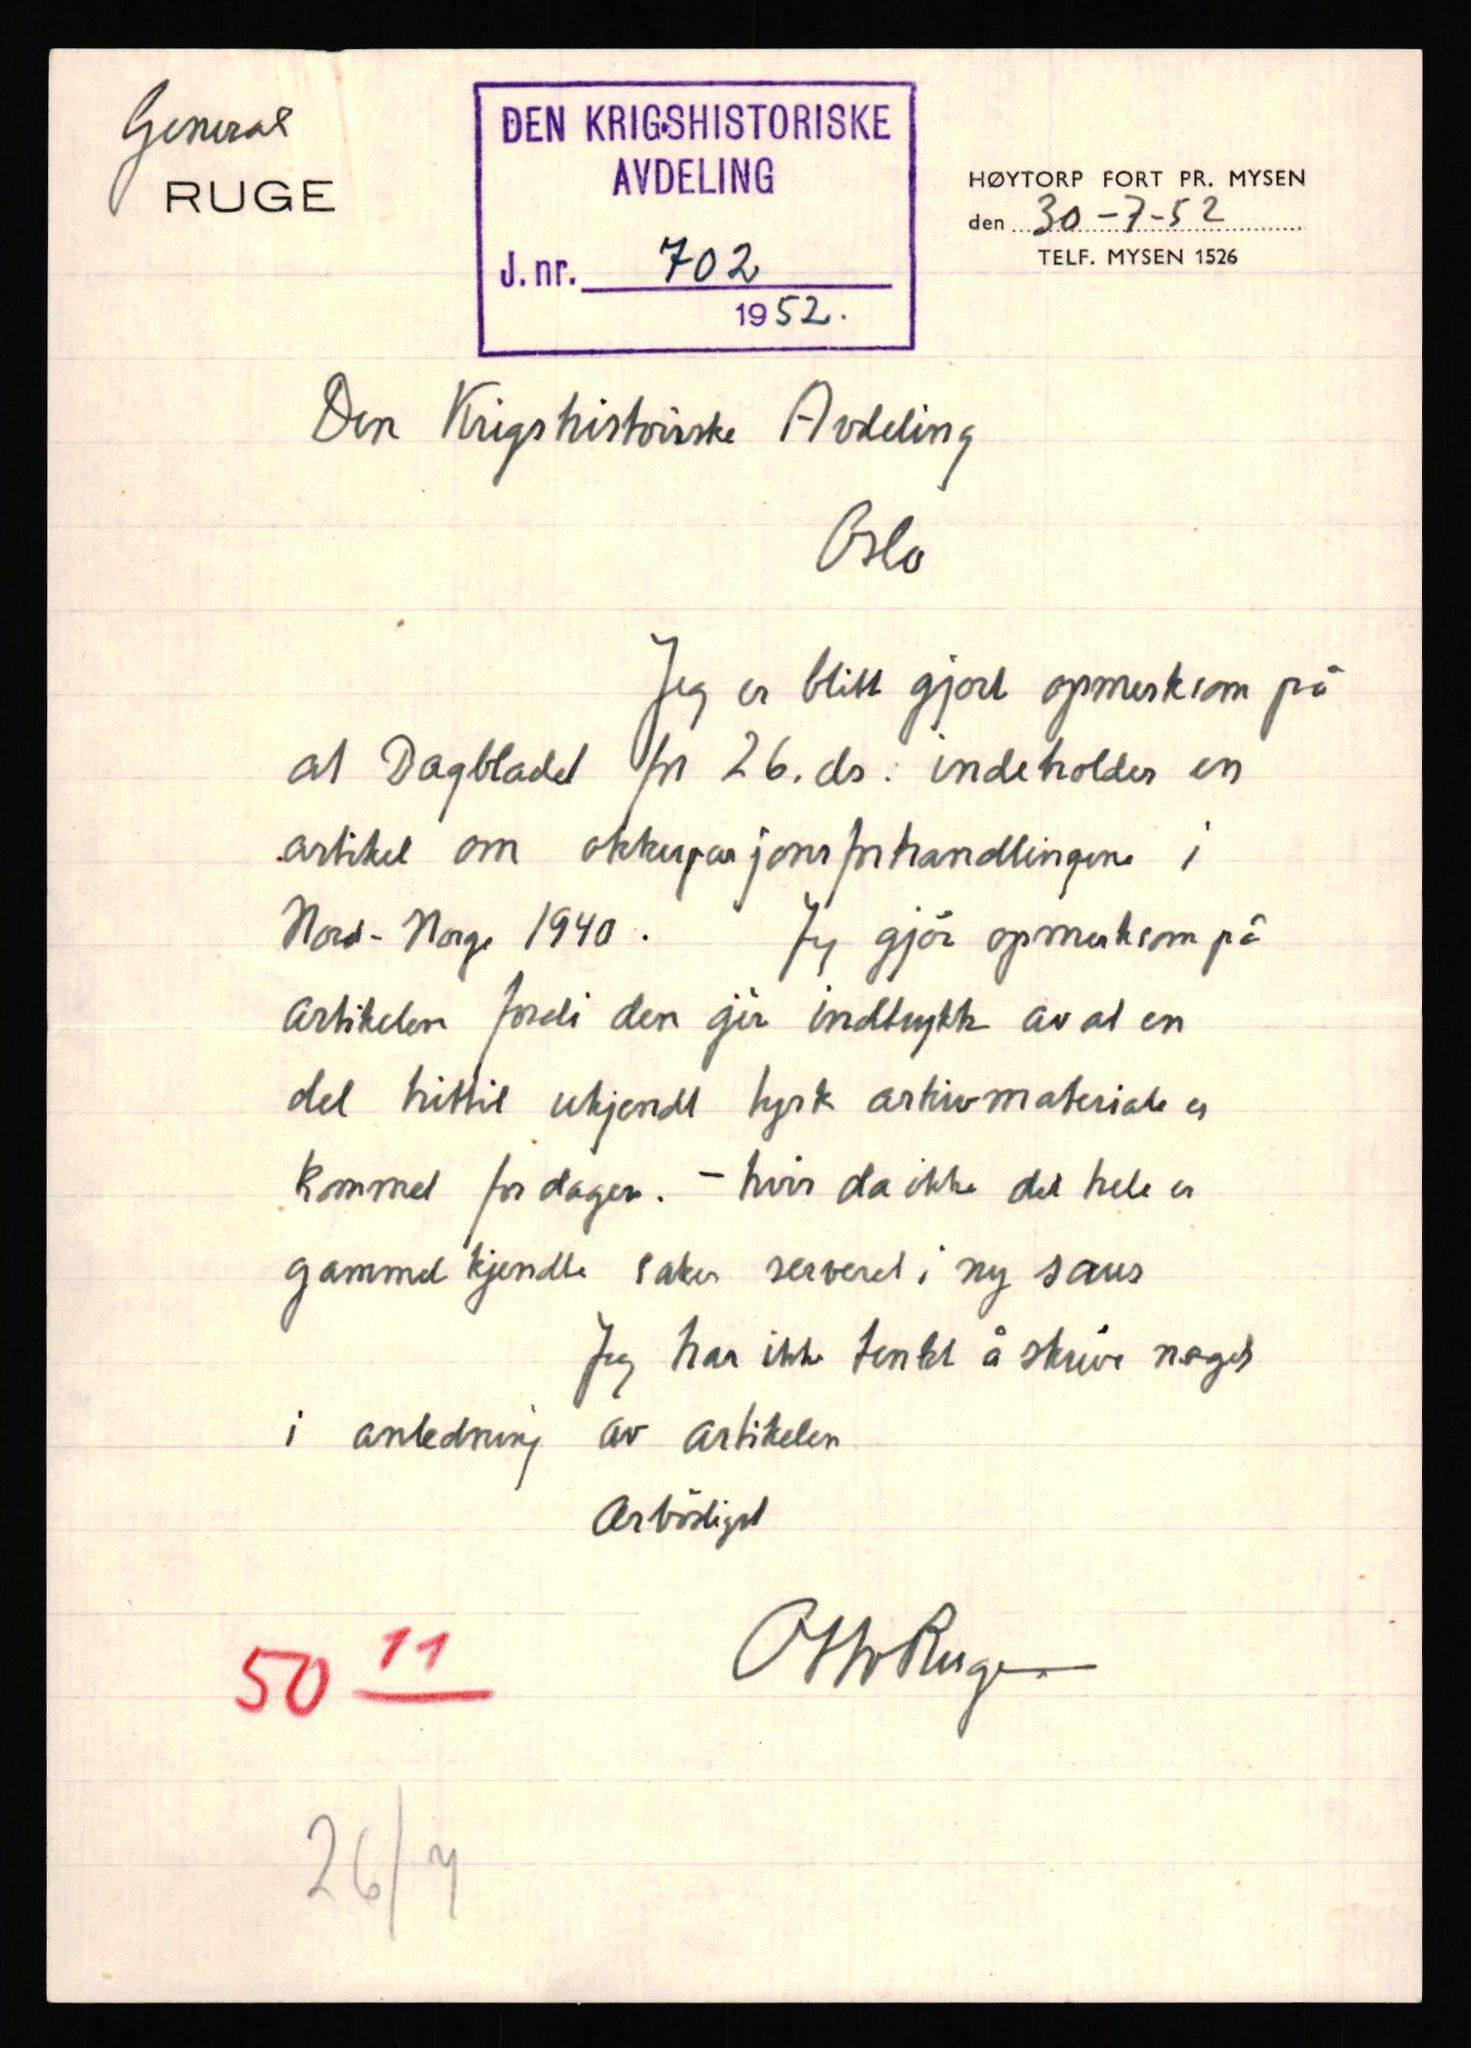 General
RUGE
DEN KRIGSHISTORISKE
AVDELING
J. nr. 702
1952.
HØYTORP FORT PR. MYSEN
den 30-7-52
TELF. MYSEN 1526
Den Krigshistoriske Avdeling
Oslo
Jeg er blitt gjort opmerksom på
at Dagbladet for 26. ds. indeholder en
artikel om okkupasjonsforhandlingene i
Nord-Norge 1940. Jeg gjör opmerksom på
artikelen fordi den gir indtrykk av at en
del hittil ukjendt tysk arkivmateriale er
kommet for dagen. - hvis da ikke det hele er
gammel kjendte saker servert i ny saus
Jeg har ikke tenkt å skrive noget
i anledning av artikelen
Ærbödigst
Otto Ruge
50 11
26/7